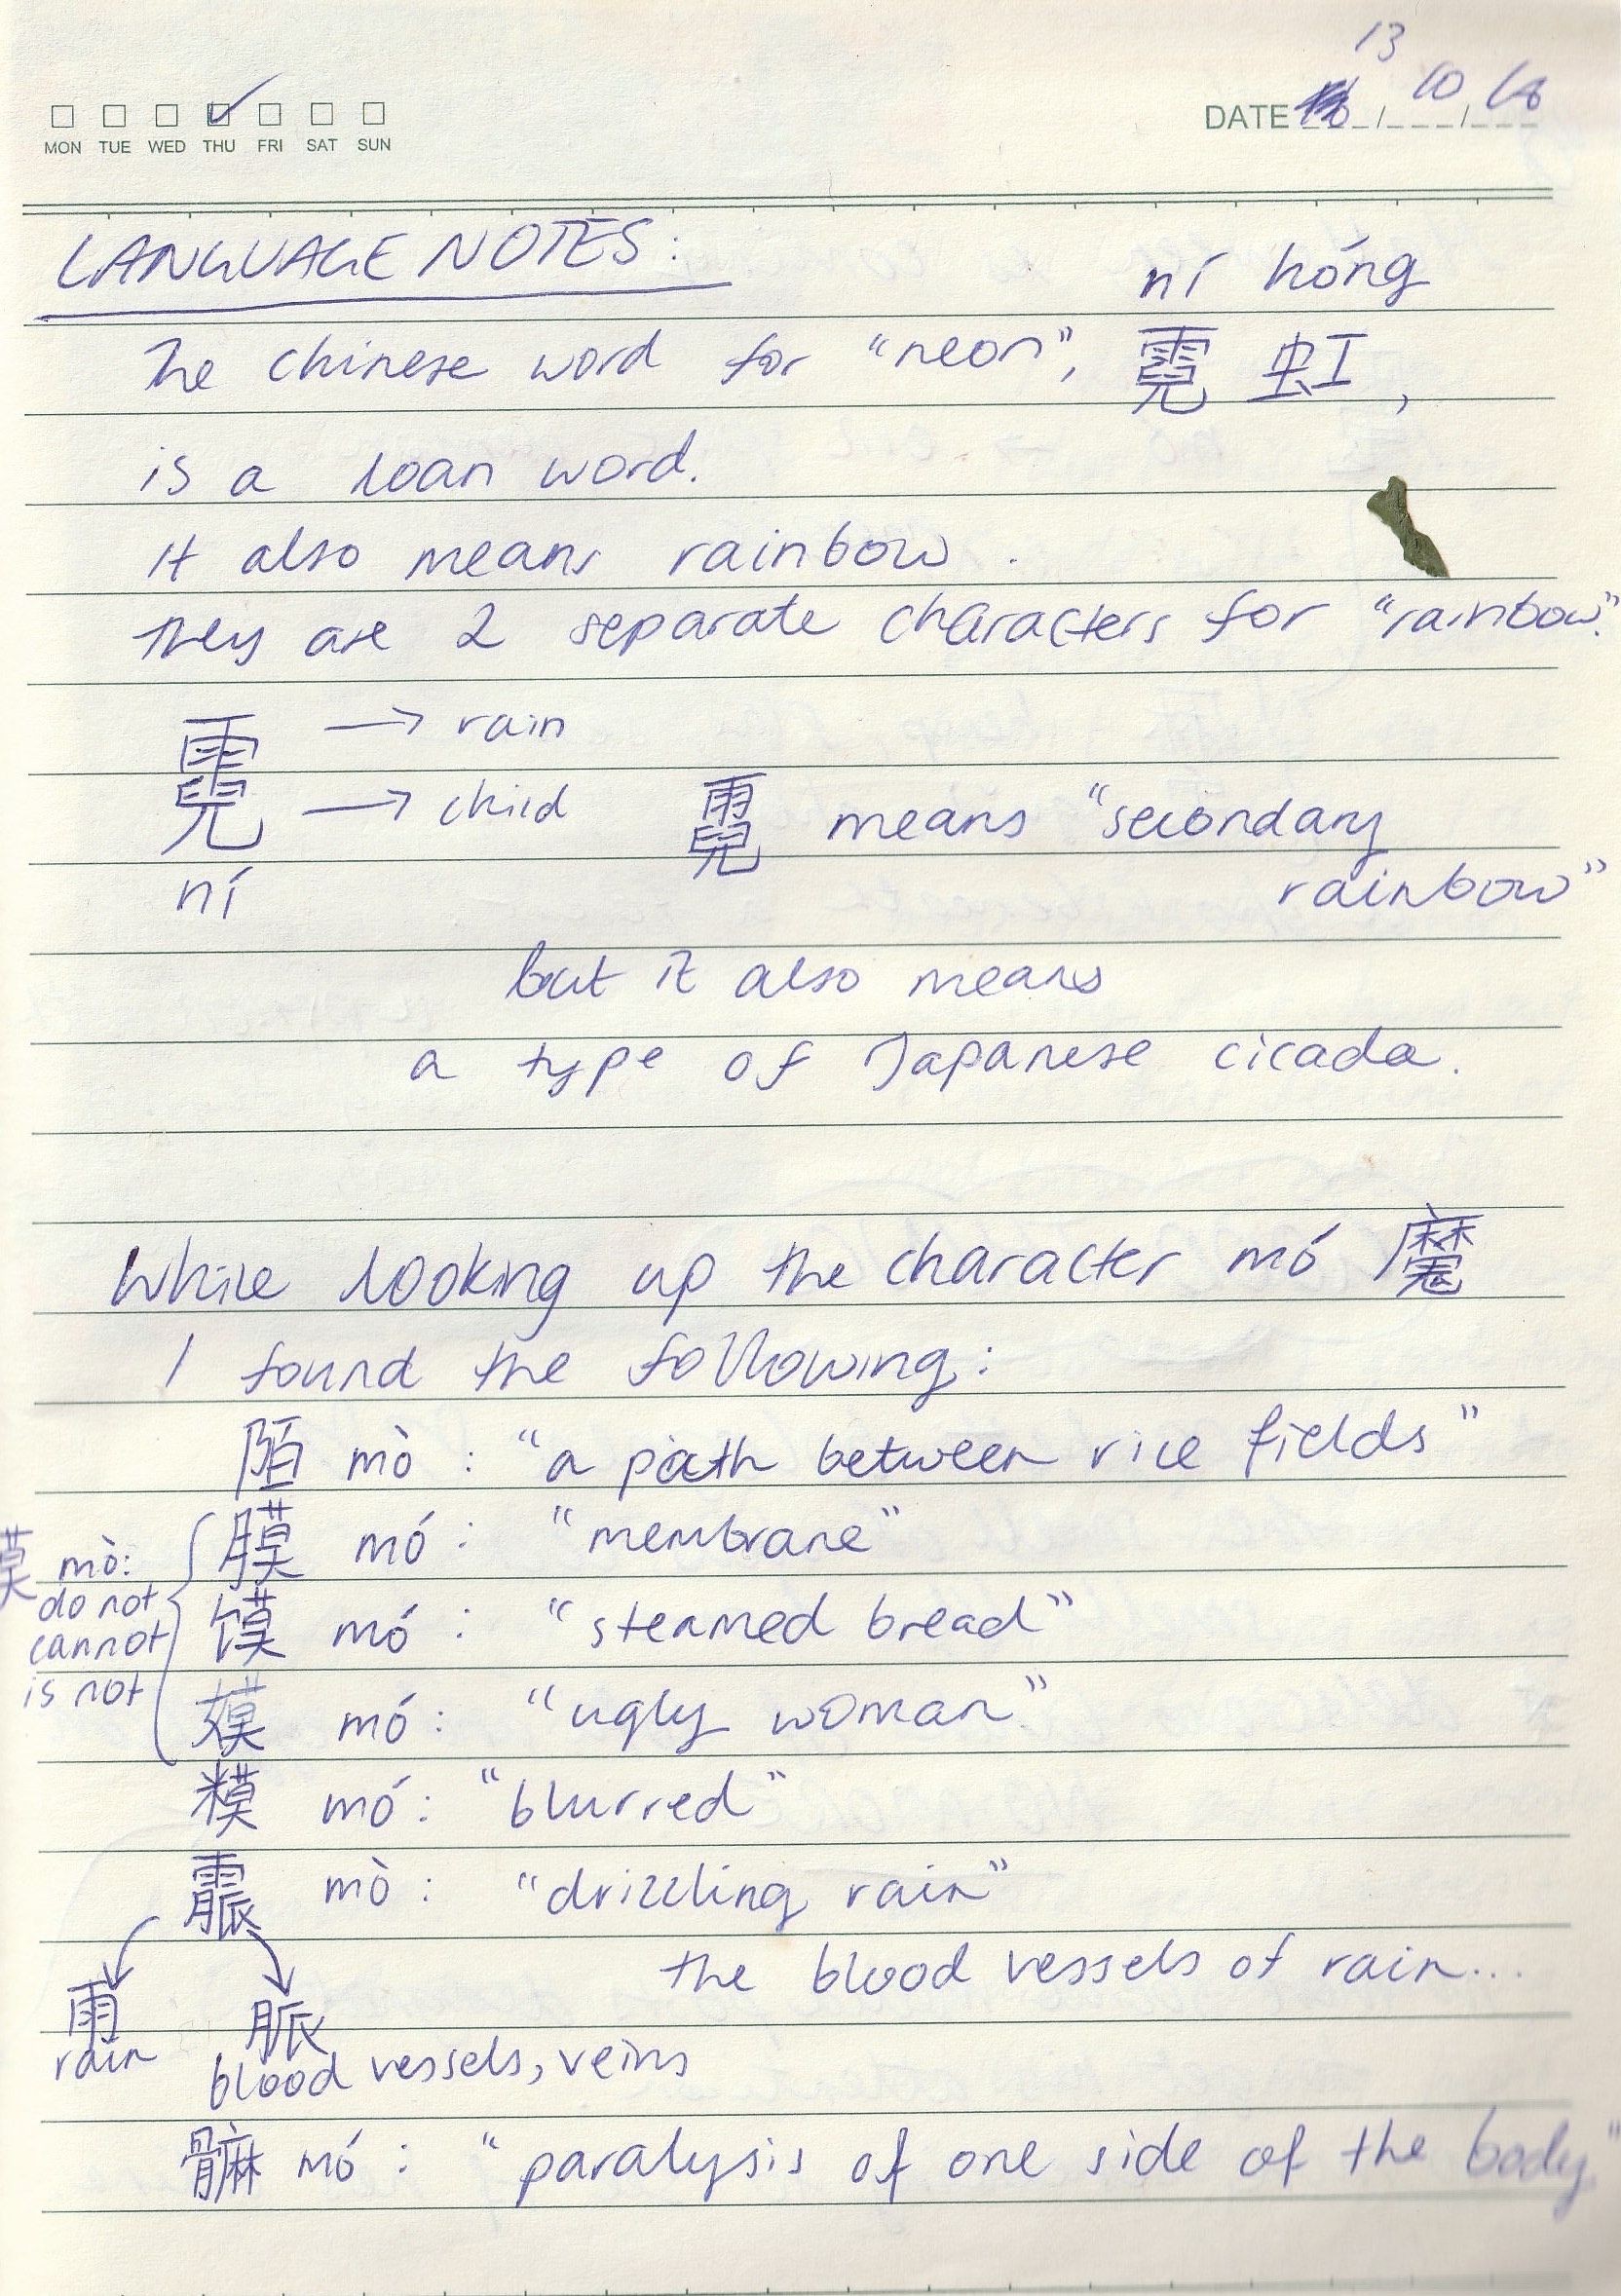 13 10 16
MON TUE WED THU FRI SAT SUN
DATE
LANGUAGE NOTES:
ní hóng
The chinese word for "neon", 霓虹,
is a loan word.
it also means rainbow.
they are 2 separate characters for "rainbow".
霓 → rain
→ child
霓 means "secondary
rainbow"
ní
but it also means
a type of Japanese cicada.
While looking up the character mó 魔
I found the following:
陌 mò: "a path between rice fields"
膜 mó: "membrane"
莫 mò:
do not
cannot
is not
馍 mó: "steamed bread"
嫫 mó: "ugly woman"
糢 mó: "blurred"
霢 mò: "drizzling rain"
the blood vessels of rain...
雨 脈
rain blood vessels, veins
髍 mó: "paralysis of one side of the body"